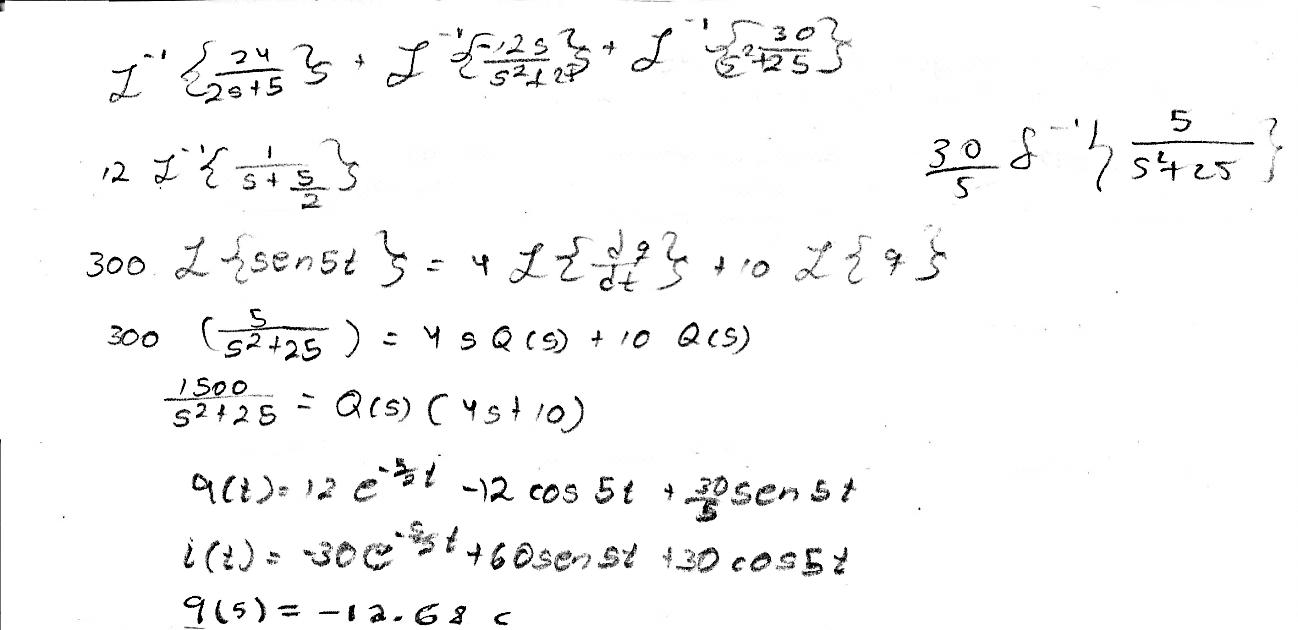 ℒ⁻¹{24/(2s+5)} + ℒ⁻¹{-12s/(s²+25)} + ℒ⁻¹{30/(s²+25)}
12 ℒ⁻¹{1/(s+5/2)}
30/5 ℒ⁻¹{5/(s²+25)}
300 ℒ{sen5t} = 4 ℒ{dq/dt} + 10 ℒ{q}
300 (5/(s²+25)) = 4sQ(s) + 10 Q(s)
1500/(s²+25) = Q(s) (4s+10)
q(t) = 12 e^(-5/2 t) -12 cos 5t + 30/5 sen 5t
i(t) = -30e^(-5/2 t) + 60sen 5t + 30 cos5t
q(5) = -12.68 c